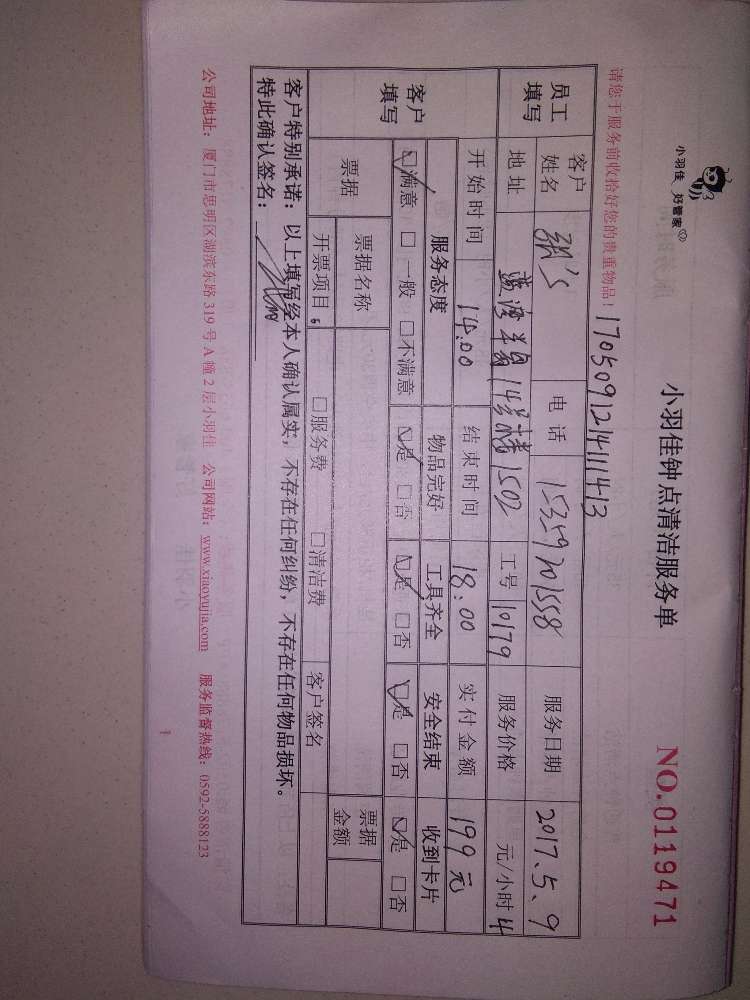 小羽佳 好管家
小羽佳钟点清洁服务单
NO.0119471
请您于服务前收拾好您的贵重物品！
17050912141113
员工填写
客户姓名 张's 电话 15359201558 服务日期 2017.5.9
地址 蓝湾半岛14号楼1502 工号 10179 服务价格 元/小时 4
开始时间 14:00 结束时间 18:00 实付金额 199元
客户填写
服务态度 物品完好 工具齐全 安全结束 收到卡片
☑满意 □一般 □不满意 ☑是 □否 ☑是 □否 ☑是 □否 ☑是 □否
票据 票据名称 票据金额
开票项目： □服务费 □清洁费 客户签名
客户特别承诺：以上填写经本人确认属实，不存在任何纠纷，不存在任何物品损坏。
特此确认签名：
公司地址：厦门市思明区湖滨东路319号A幢2层小羽佳 公司网站：www.xiaoyujia.com 服务监督热线：0592-5888123